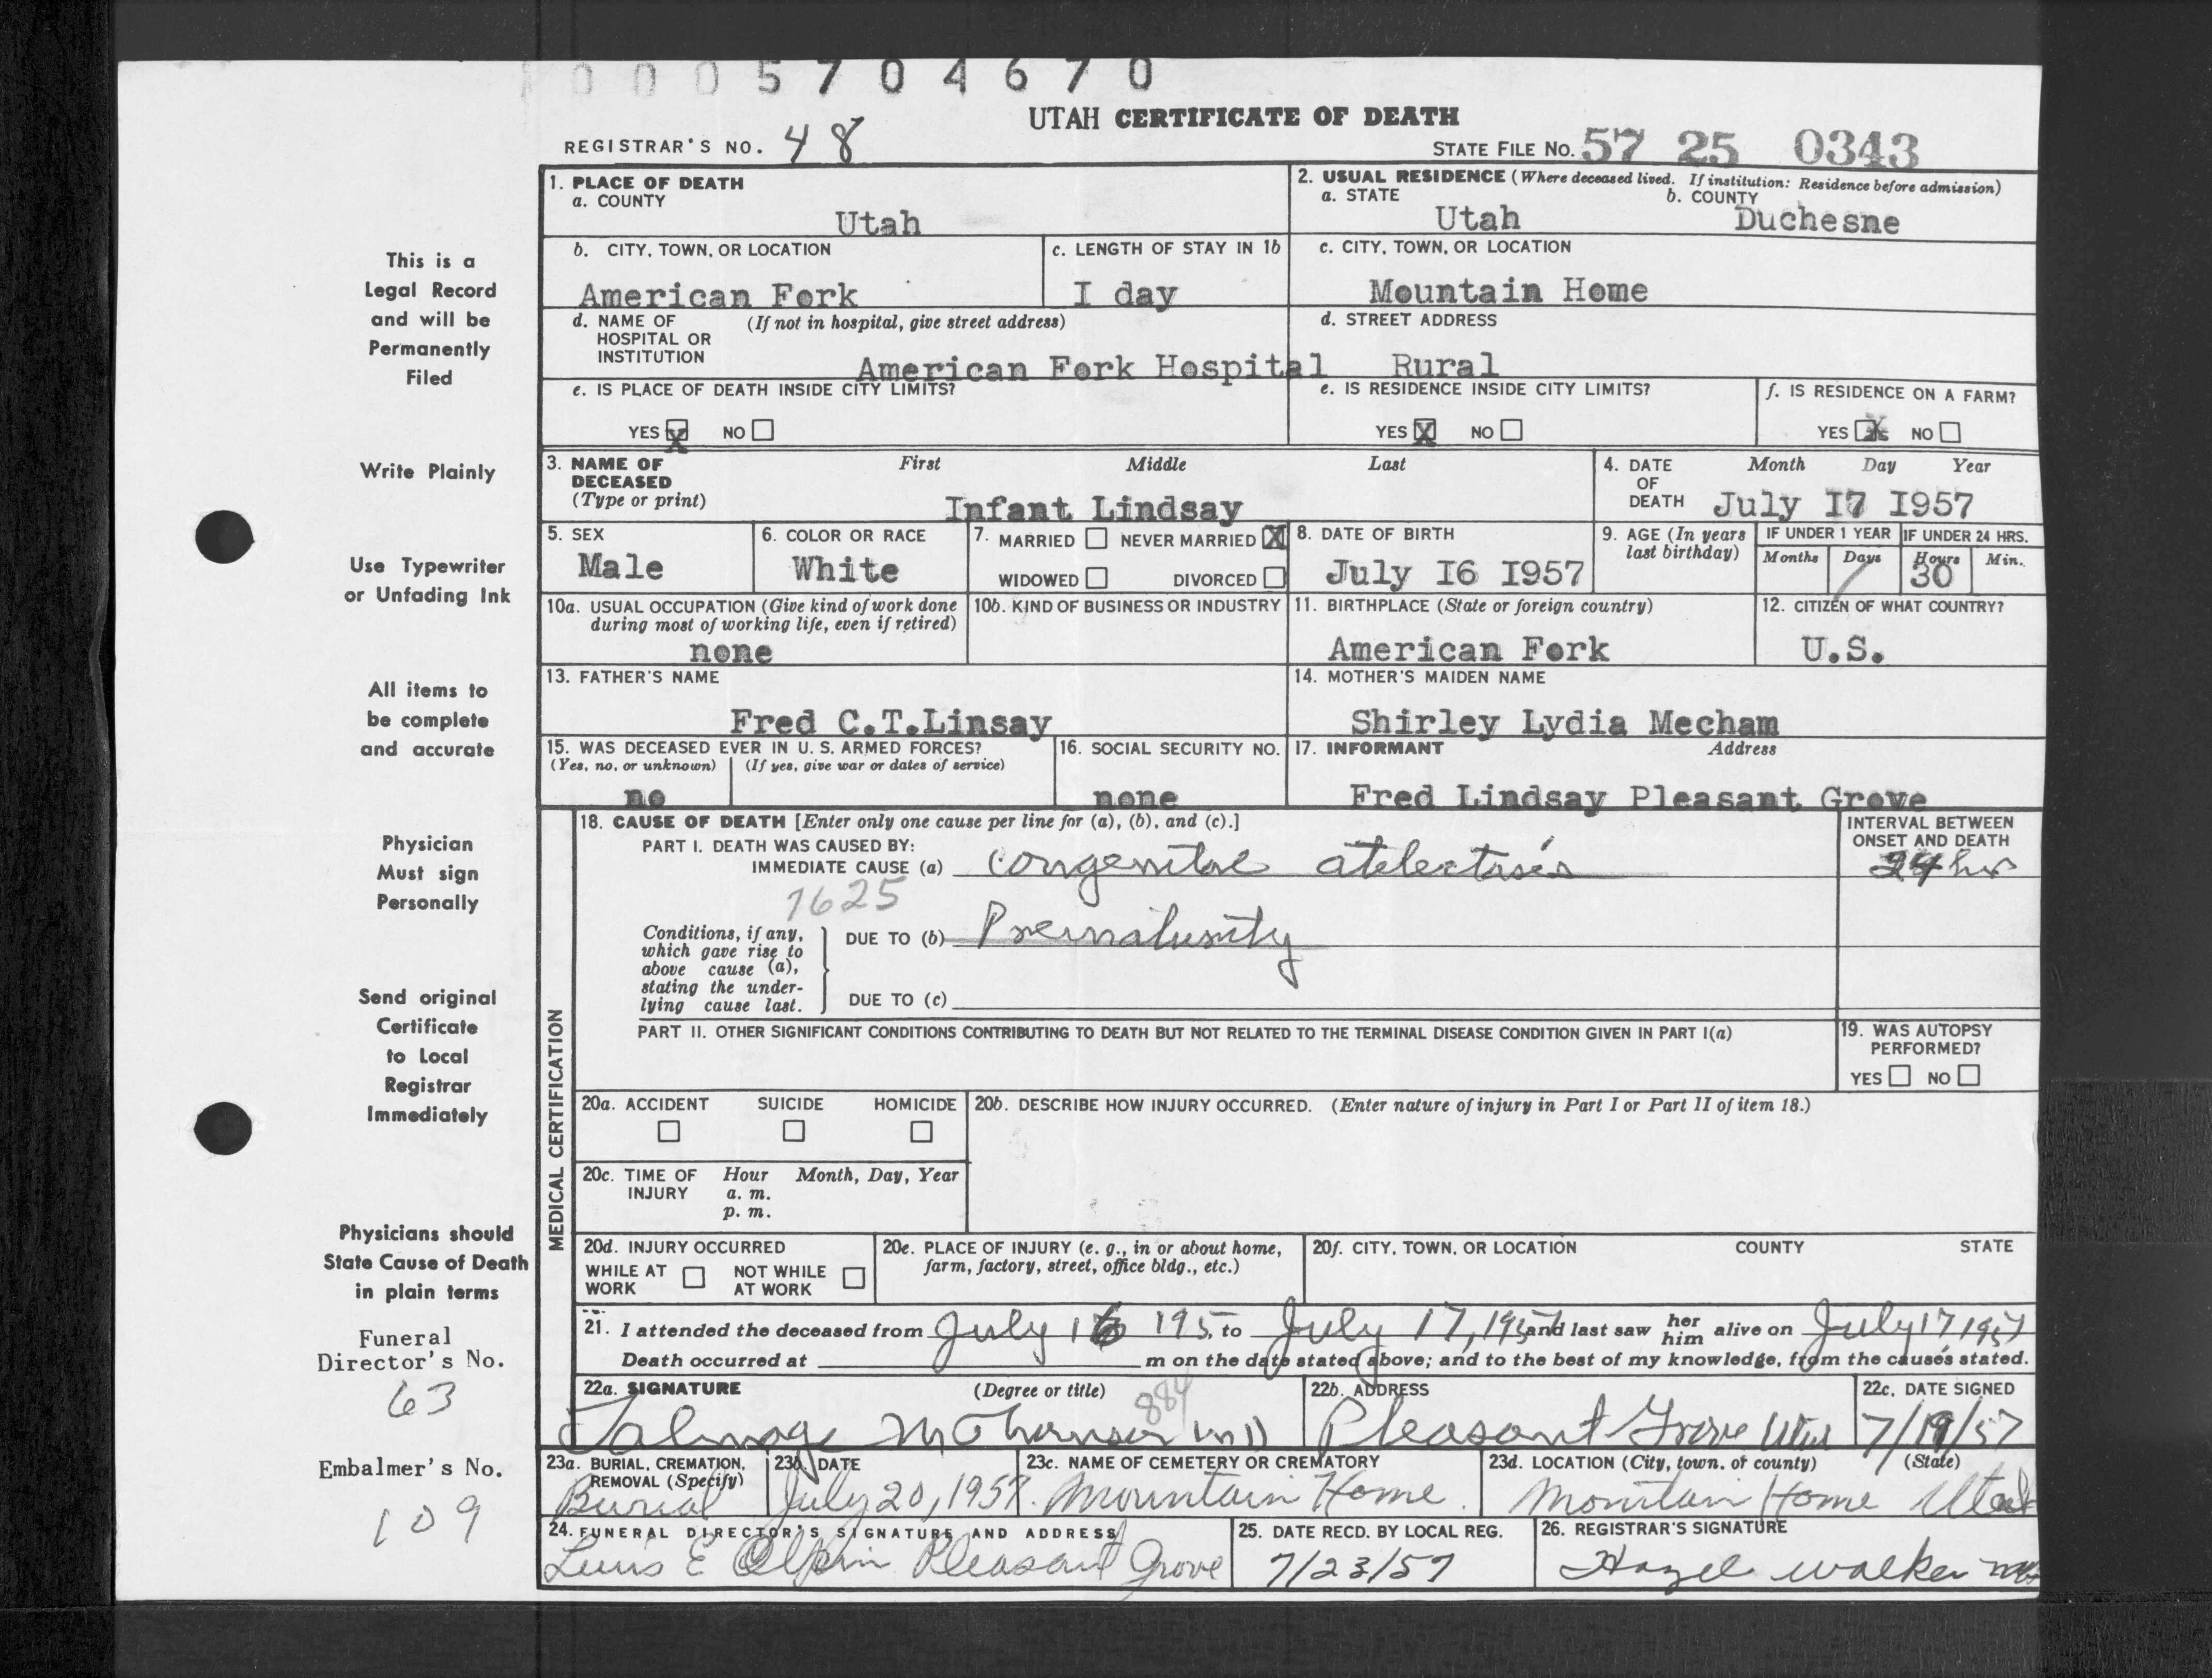 0005704670
UTAH CERTIFICATE OF DEATH
REGISTRAR'S NO. 48
STATE FILE NO. 57 25 0343
1. PLACE OF DEATH
a. COUNTY
Utah
2. USUAL RESIDENCE (Where deceased lived. If institution: Residence before admission)
a. STATE
Utah
b. COUNTY
Duchesne
b. CITY, TOWN, OR LOCATION
American Fork
c. LENGTH OF STAY IN 1b
I day
c. CITY, TOWN, OR LOCATION
Mountain Home
d. NAME OF HOSPITAL OR INSTITUTION (If not in hospital, give street address)
American Fork Hospital
d. STREET ADDRESS
Rural
e. IS PLACE OF DEATH INSIDE CITY LIMITS?
YES X NO
e. IS RESIDENCE INSIDE CITY LIMITS?
YES X NO
f. IS RESIDENCE ON A FARM?
YES X NO
3. NAME OF DECEASED (Type or print)
First Middle Last
Infant Lindsay
4. DATE OF DEATH
Month Day Year
July I7 I957
5. SEX
Male
6. COLOR OR RACE
White
7. MARRIED NEVER MARRIED X
WIDOWED DIVORCED
8. DATE OF BIRTH
July I6 I957
9. AGE (In years last birthday)
IF UNDER 1 YEAR
Months Days
IF UNDER 24 HRS.
Hours Min.
30
10a. USUAL OCCUPATION (Give kind of work done during most of working life, even if retired)
none
10b. KIND OF BUSINESS OR INDUSTRY
11. BIRTHPLACE (State or foreign country)
American Fork
12. CITIZEN OF WHAT COUNTRY?
U.S.
13. FATHER'S NAME
Fred C.T.Linsay
14. MOTHER'S MAIDEN NAME
Shirley Lydia Mecham
15. WAS DECEASED EVER IN U. S. ARMED FORCES?
(Yes, no, or unknown) (If yes, give war or dates of service)
no
16. SOCIAL SECURITY NO.
none
17. INFORMANT Address
Fred Lindsay Pleasant Grove
MEDICAL CERTIFICATION
18. CAUSE OF DEATH [Enter only one cause per line for (a), (b), and (c).]
INTERVAL BETWEEN ONSET AND DEATH
PART I. DEATH WAS CAUSED BY:
IMMEDIATE CAUSE (a) congenital atelectasis
24 hr
7625
Conditions, if any, which gave rise to above cause (a), stating the underlying cause last.
DUE TO (b) Prematurity
DUE TO (c)
PART II. OTHER SIGNIFICANT CONDITIONS CONTRIBUTING TO DEATH BUT NOT RELATED TO THE TERMINAL DISEASE CONDITION GIVEN IN PART I(a)
19. WAS AUTOPSY PERFORMED?
YES NO
20a. ACCIDENT SUICIDE HOMICIDE
20b. DESCRIBE HOW INJURY OCCURRED. (Enter nature of injury in Part I or Part II of item 18.)
20c. TIME OF INJURY Hour Month, Day, Year
a. m.
p. m.
20d. INJURY OCCURRED
WHILE AT WORK NOT WHILE AT WORK
20e. PLACE OF INJURY (e. g., in or about home, farm, factory, street, office bldg., etc.)
20f. CITY, TOWN, OR LOCATION COUNTY STATE
21. I attended the deceased from July 16 195 to July 17, 1957 and last saw her him alive on July 17 1957
Death occurred at m on the date stated above; and to the best of my knowledge, from the causes stated.
22a. SIGNATURE (Degree or title)
884
Talmage MD
22b. ADDRESS
Pleasant Grove Utah
22c. DATE SIGNED
7/19/57
23a. BURIAL, CREMATION, REMOVAL (Specify)
Burial
23b. DATE
July 20, 1957.
23c. NAME OF CEMETERY OR CREMATORY
Mountain Home.
23d. LOCATION (City, town, or county) (State)
Mountain Home Utah
24. FUNERAL DIRECTOR'S SIGNATURE AND ADDRESS
E Olpin Pleasant Grove
25. DATE RECD. BY LOCAL REG.
7/23/57
26. REGISTRAR'S SIGNATURE
Hazel Walker
This is a
Legal Record
and will be
Permanently
Filed
Write Plainly
Use Typewriter
or Unfading Ink
All items to
be complete
and accurate
Physician
Must sign
Personally
Send original
Certificate
to Local
Registrar
Immediately
Physicians should
State Cause of Death
in plain terms
Funeral
Director's No.
63
Embalmer's No.
109